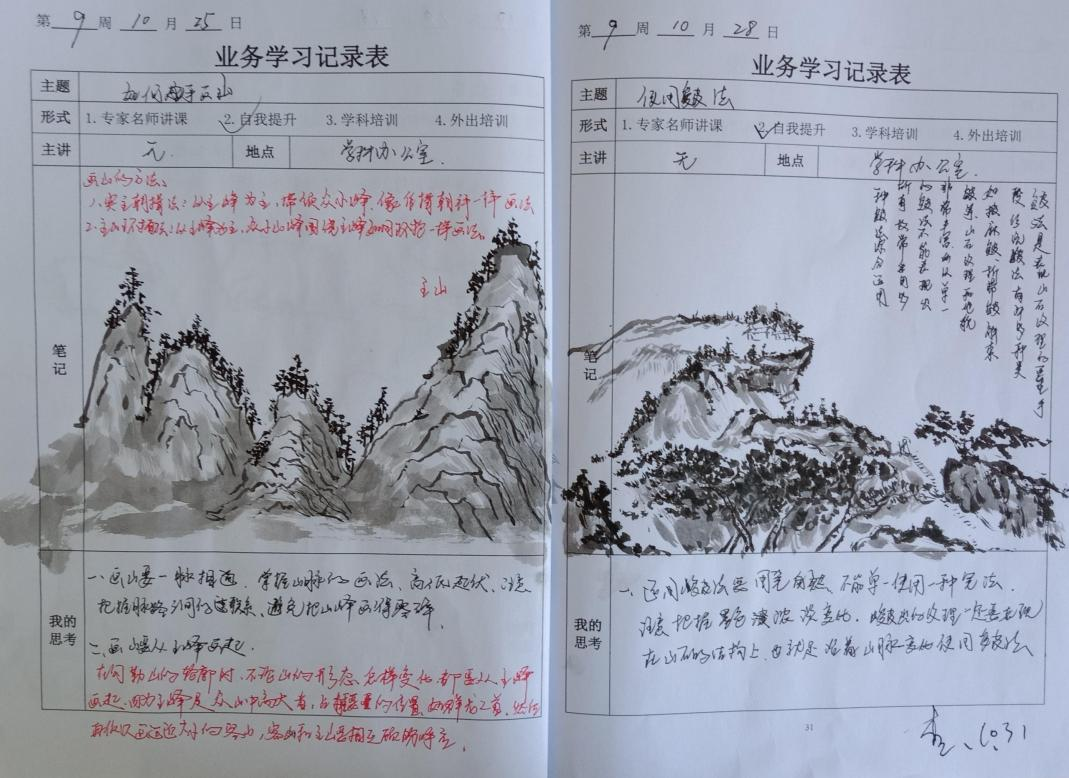 第 9 周 10 月 25 日
业务学习记录表
主题 如何画山
形式 1.专家名师讲课 2.自我提升 3.学科培训 4.外出培训
主讲 无 地点 学科办公室
笔记
画山的方法：
1.宾主朝揖法：以主峰为主，众小峰像作揖朝拜一样画法
2.主山环抱法：以主峰为主，众小山峰围绕主峰如同环抱一样画法。
主山
我的思考
一、画山要一脉相通，掌握山脉的画法，高低起伏，注意
把握脉络之间的连联系，避免把山峰画得零碎
二、画山要从主峰画起
在勾勒山的轮廓时，不论山的形态怎样变化，都要从主峰
画起，因为主峰是众山中高大者，占重要的位置，如群龙之首，然后
客山和主山要相互顾盼呼应。
第 9 周 10 月 28 日
业务学习记录表
主题 使用皴法
形式 1.专家名师讲课 2.自我提升 3.学科培训 4.外出培训
主讲 无 地点 学科办公室
笔记
皴法是表现山石纹理的重要手
段，传统皴法有许多种类
如披麻皴、折带皴、斧劈
皴等，山石纹理和地貌
非常丰富，而仅单一
的皴法不能表现出
所有，故常采用多
种皴法综合运用
我的思考
一、运用皴法要用笔自然，不能单一使用一种笔法
注意把握墨色浓淡变化，皴出的纹理一定要表现
在山石的结构上，也就是沿着山脉变化使用皴法
31
10.31